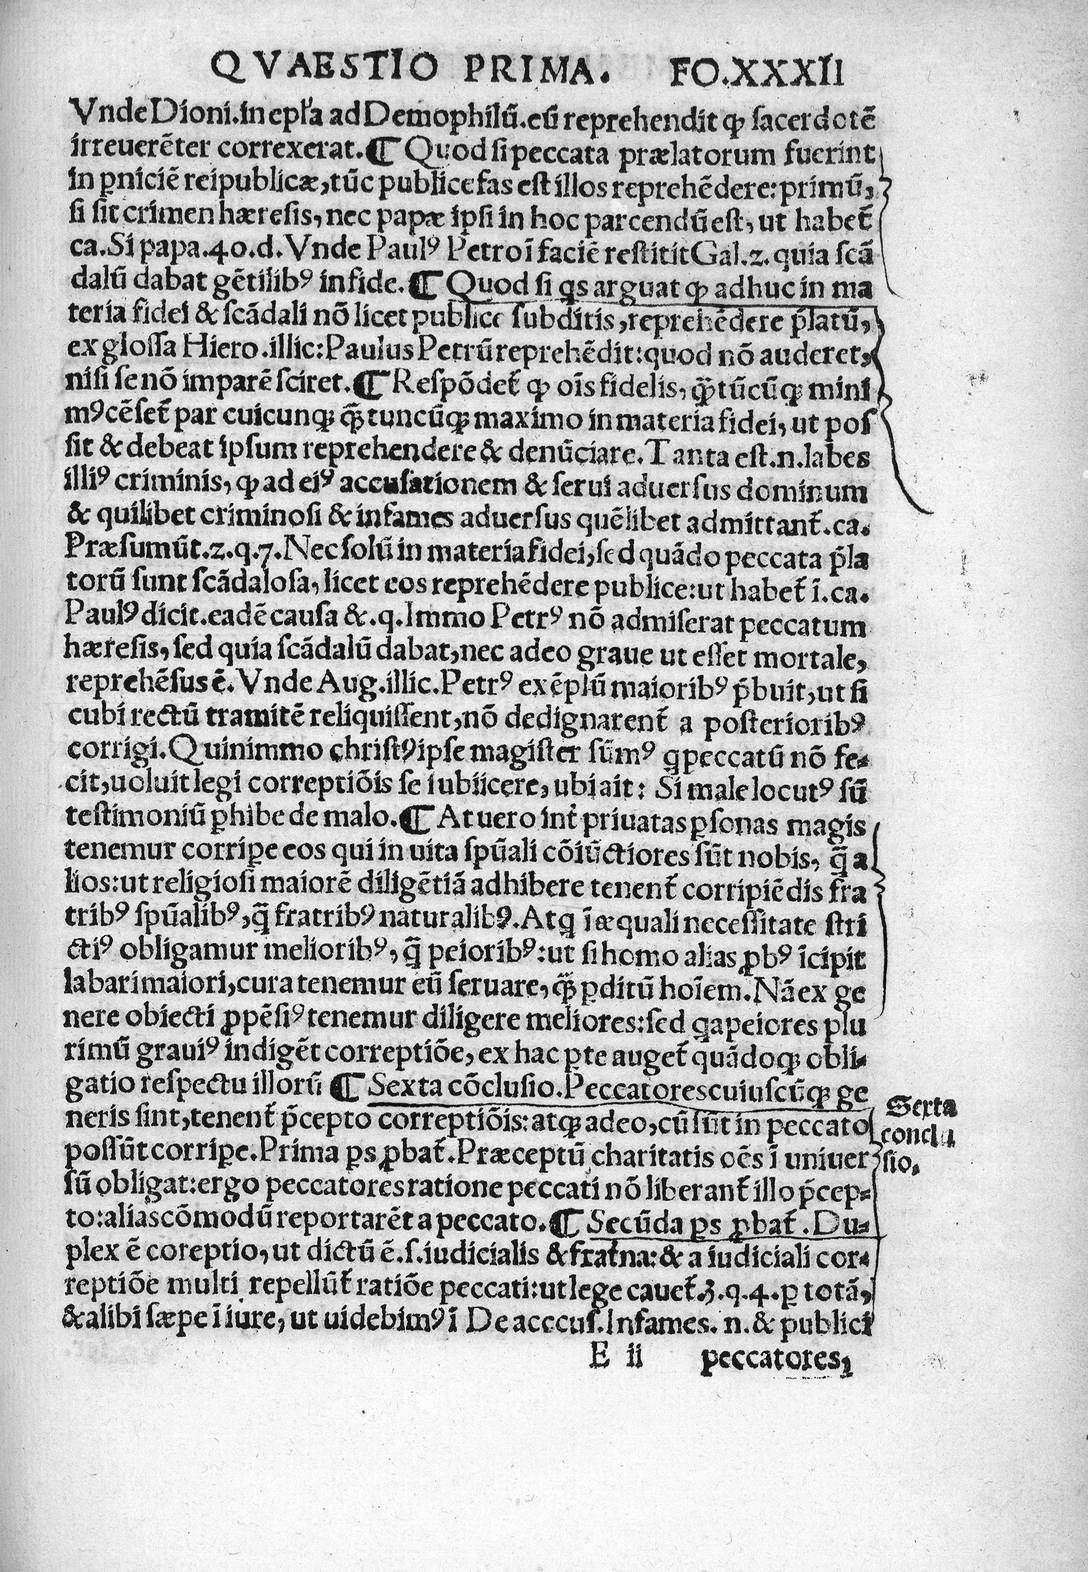 QVAESTIO PRIMA. FO.XXXII
Vnde Dioni.in epl'a ad Demophilũ.eũ reprehendit ꝙ sacerdotẽ
irreuerẽter correxerat.¶ Quod si peccata prælatorum fuerint
in ꝑniciẽ reipublicæ,tũc publice fas est illos reprehẽdere:primũ,
si sit crimen hæresis, nec papæ ipsi in hoc parcendũ est, ut habet̃
ca.Si papa.40.d.Vnde Paulꝰ Petro ĩ faciẽ restitit Gal.2.quia scã
dalũ dabat gẽtilibꝰ in fide.¶ Quod si qs arguat ꝙ adhuc in ma
teria fidei & scãdali nõ licet publice subditis,reprehẽdere p̃latũ,
ex glossa Hiero.illic:Paulus Petrũ reprehẽdit:quod nõ auderet,
nisi se nõ imparẽ sciret.¶ Respõdet̃ ꝙ oĩs fidelis, q̃tũcũꝙ mini
mꝰ cẽset̃ par cuicunꝙ q̃tuncũꝙ maximo in materia fidei, ut pos
sit & debeat ipsum reprehendere & denũciare.Tanta est.n.labes
illiꝰ criminis, ꝙ ad eiꝰ accusationem & serui aduersus dominum
& quilibet criminosi & infames aduersus quẽlibet admittant̃.ca.
Præsumũt.2.q.7.Nec solũ in materia fidei,sed quãdo peccata p̃la
torũ sunt scãdalosa, licet eos reprehẽdere publice:ut habet̃ ĩ.ca.
Paulꝰ dicit.eadẽ causa &.q.Immo Petrꝰ nõ admiserat peccatum
hæresis, sed quia scãdalũ dabat,nec adeo graue ut esset mortale,
reprehẽsus ẽ.Vnde Aug.illic.Petrꝰ exẽplũ maioribꝰ p̃buit,ut si
cubi rectũ tramitẽ reliquissent,nõ dedignarent̃ a posterioribꝰ
corrigi.Quinimmo christꝰ ipse magister sũmꝰ q peccatũ nõ fe-
cit,uoluit legi correptiõis se subiicere, ubi ait: Si male locutꝰ sũ
testimoniũ ꝑhibe de malo.¶ At uero int̃ priuatas ꝑsonas magis
tenemur corriꝑe eos qui in uita spũali cõiũctiores sũt nobis, q̃ a
lios:ut religiosi maiorẽ diligẽtiã adhibere tenent̃ corripiẽdis fra
tribꝰ spũalibꝰ,q̃ fratribꝰ naturalibꝰ.Atq ĩ æquali necessitate stri
ctiꝰ obligamur melioribꝰ, q̃ peioribꝰ:ut si homo alias ꝓbꝰ ĩcipit
labari maiori,cura tenemur eũ seruare, q̃ ꝑditũ hoĩem.Nã ex ge
nere obiecti ꝓpẽsiꝰ tenemur diligere meliores:sed q a peiores plu
rimũ grauiꝰ indigẽt correptiõe, ex hac ꝑte auget̃ quãdoꝙ obli-
gatio respectu illorũ ¶ Sexta cõclusio.Peccatores cuiuscũꝙ ge
neris sint,tenent̃ p̃cepto correptiõis:atꝙ adeo,cũ sũt in peccato
possũt corriꝑe.Prima ꝑs ꝓbat̃.Præceptũ charitatis oẽs ĩ uniuer
sũ obligat:ergo peccatores ratione peccati nõ liberant̃ illo p̃cep-
to:alias cõmodũ reportarẽt a peccato.¶ Secũda ꝑs ꝓbat̃.Du-
plex ẽ coreptio, ut dictũ ẽ.s.iudicialis & frat̃na:& a iudiciali cor-
reptiõe multi repellũt̃ ratiõe peccati:ut lege cauet̃.3.q.4.ꝑ totã,
& alibi sæpe ĩ iure, ut uidebimꝰ ĩ De acccus.Infames. n.& publici
E ii peccatores,
Sexta
conclu
sio.